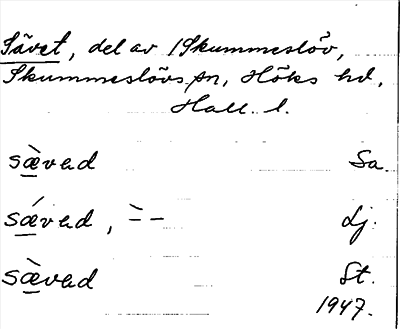 Sävet, del av Skummeslöv,
Skummeslövs sn, Höks hd,
Hall. l.
sæ̀vad Sa.
sǽvad, ̀= – Lj.
sæ̀vad St.
1947.